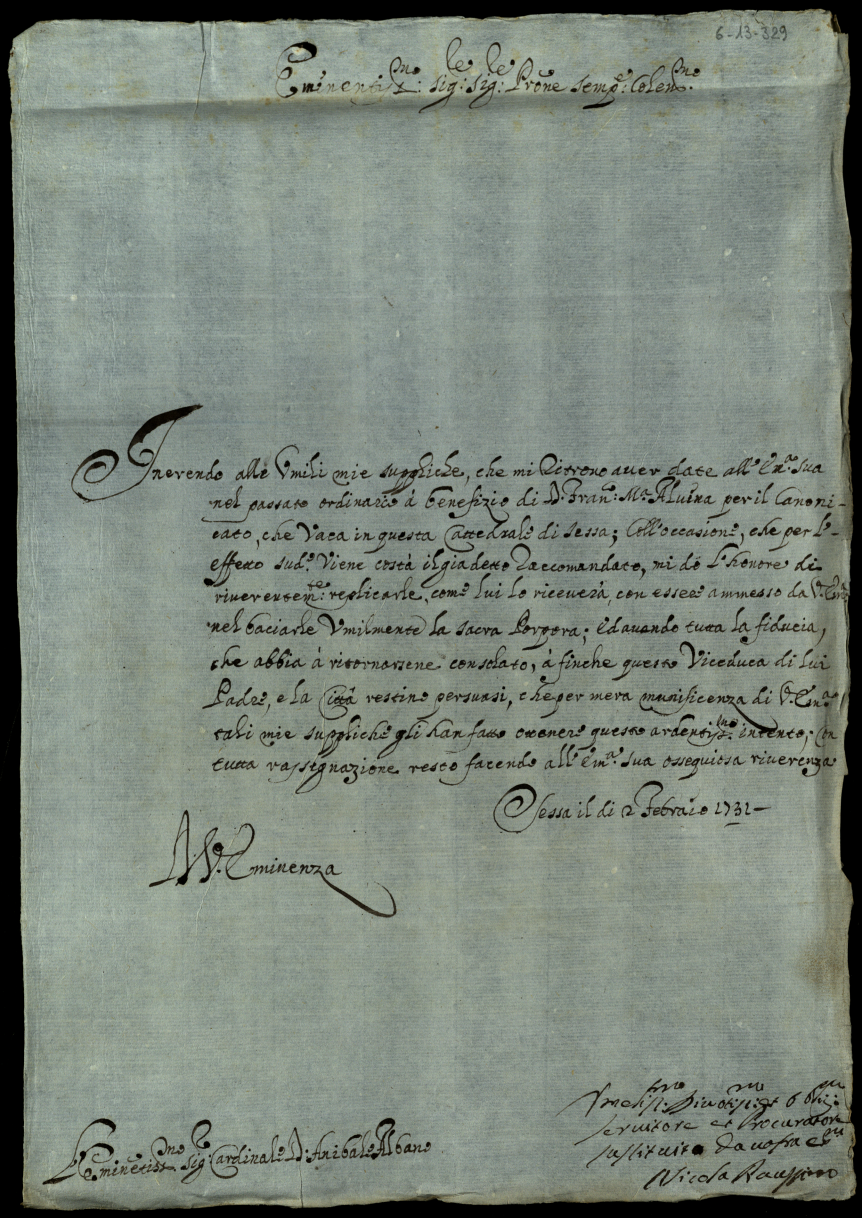 6-13-329
Eminentiss.mo: Sig:le Sig:le Prōne semp:e Colen.mo
Inerendo alle Umili mie suppliche, che mi Ritrono aver date all' Em.a Sua
nel passato ordinario à benefizio di D. Fran.o: M.a Aluina per il Canoni-
cato, che Vaca in questa Cattedrale di Sessa; Coll'occasione, che per l'-
effetto sud.o Viene costà il giadetto Raccomandato, mi dò l'honore di
riverentem.te: replicarle, come lui lo riceverà, con essere ammesso da V. Em.za
nel baciarle Umilmente la sacra Porpora; Ed avendo tutta la fiducia,
che abbia à ritornarsene consolato, à finche questo Viceduca di lui
Padre, e la Città restino persuasi, che per mera munificenza di V. Em.a,
tali mie suppliche gli han fatto ottenere questo ardentiss.mo intento; Con
tutta rassegnazione resto facendo all' Em.a Sua ossequiosa riverenza
Sessa il di 2 Febraio 1731-
D. V. Eminenza
Umiliss.mo: Divotiss.mo et Obli:
servitore et Procuratore
sustituito
Nicola
Eminētiss.mo Sig.le Cardinale D: Anibale Albano